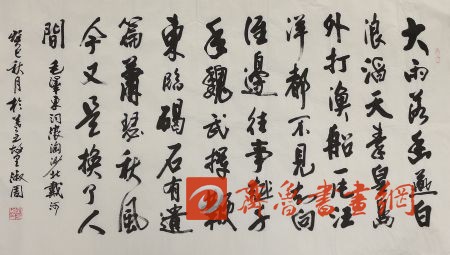 大雨落幽燕白
浪滔天秦皇島
外打漁船一片汪
洋都不見知向
誰邊往事越千
年魏武揮鞭
東臨碣石有遺
篇蕭瑟秋風
今又是換了人
間 毛澤東詞浪淘沙北戴河
癸巳秋月於
齊魯書畫網